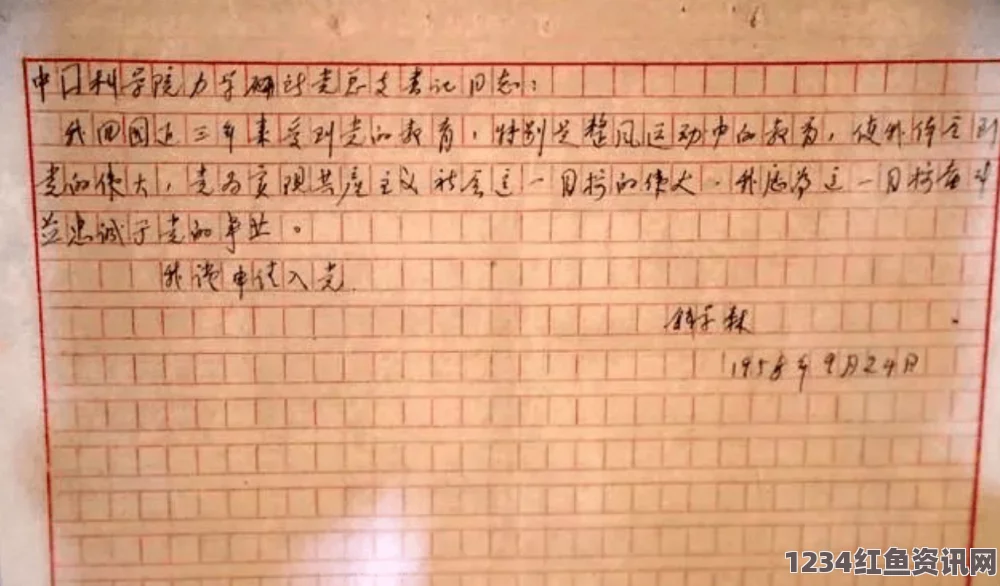 中囗科学院力学研究所党总支书记同志：
我回国近三年来受到党的教育，特别是整风运动中的教育，使我体会到
党的伟大，党为实现共产主义社会这一目标的伟大。我愿为这一目标奋斗
并忠诚于党的事业。
我谨申请入党.
钱学森
1958年9月24日
1234红鱼资讯网